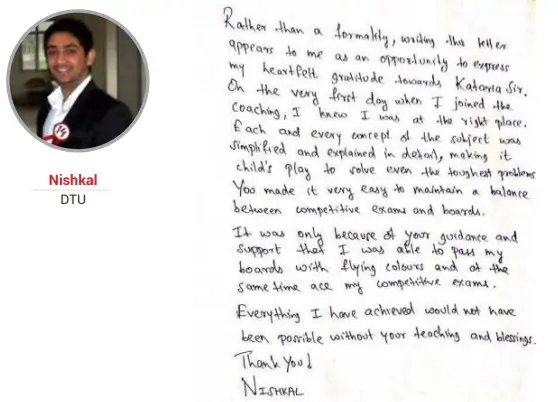 Nishkal
DTU
Rather than a formality, writing this letter
appears to me as an opportunity to express
my heartfelt gratitude towards Kataria Sir.
On the very first day when I joined the
coaching, I knew I was at the right place.
Each and every concept of the subject was
simplified and explained in detail, making it
child's play to solve even the toughest problems
You made it very easy to maintain a balance
between competitive exams and boards.
It was only because of your guidance and
support that I was able to pass my
boards with flying colours and at the
same time ace my competitive exams.
Everything I have achieved would not have
been possible without your teaching and blessings.
Thank You!
NISHKAL